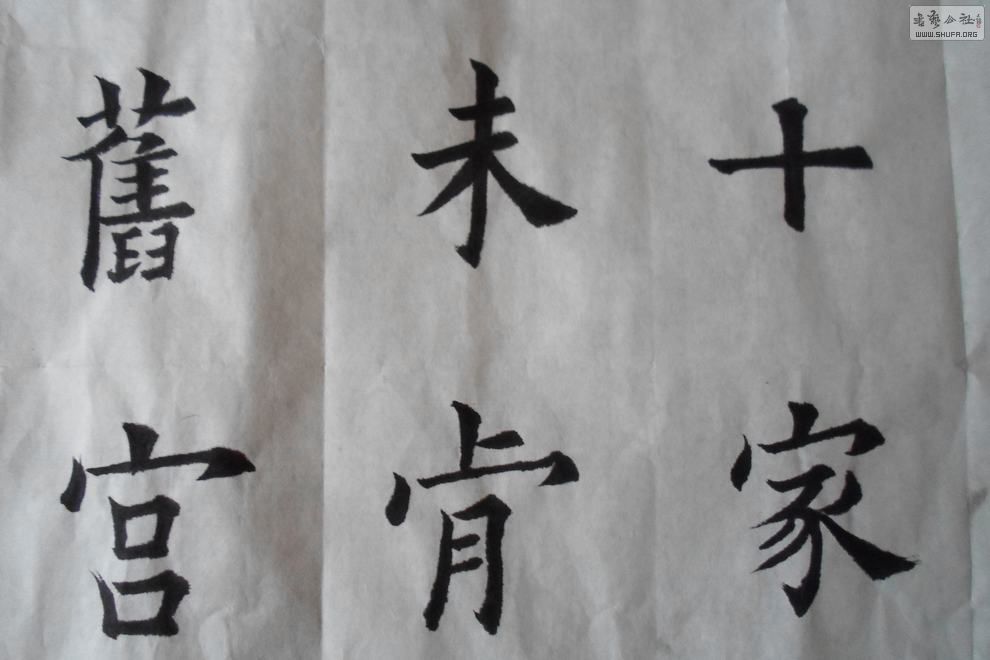 十家
未肯
舊宫
書藝公社
WWW.SHUFA.ORG